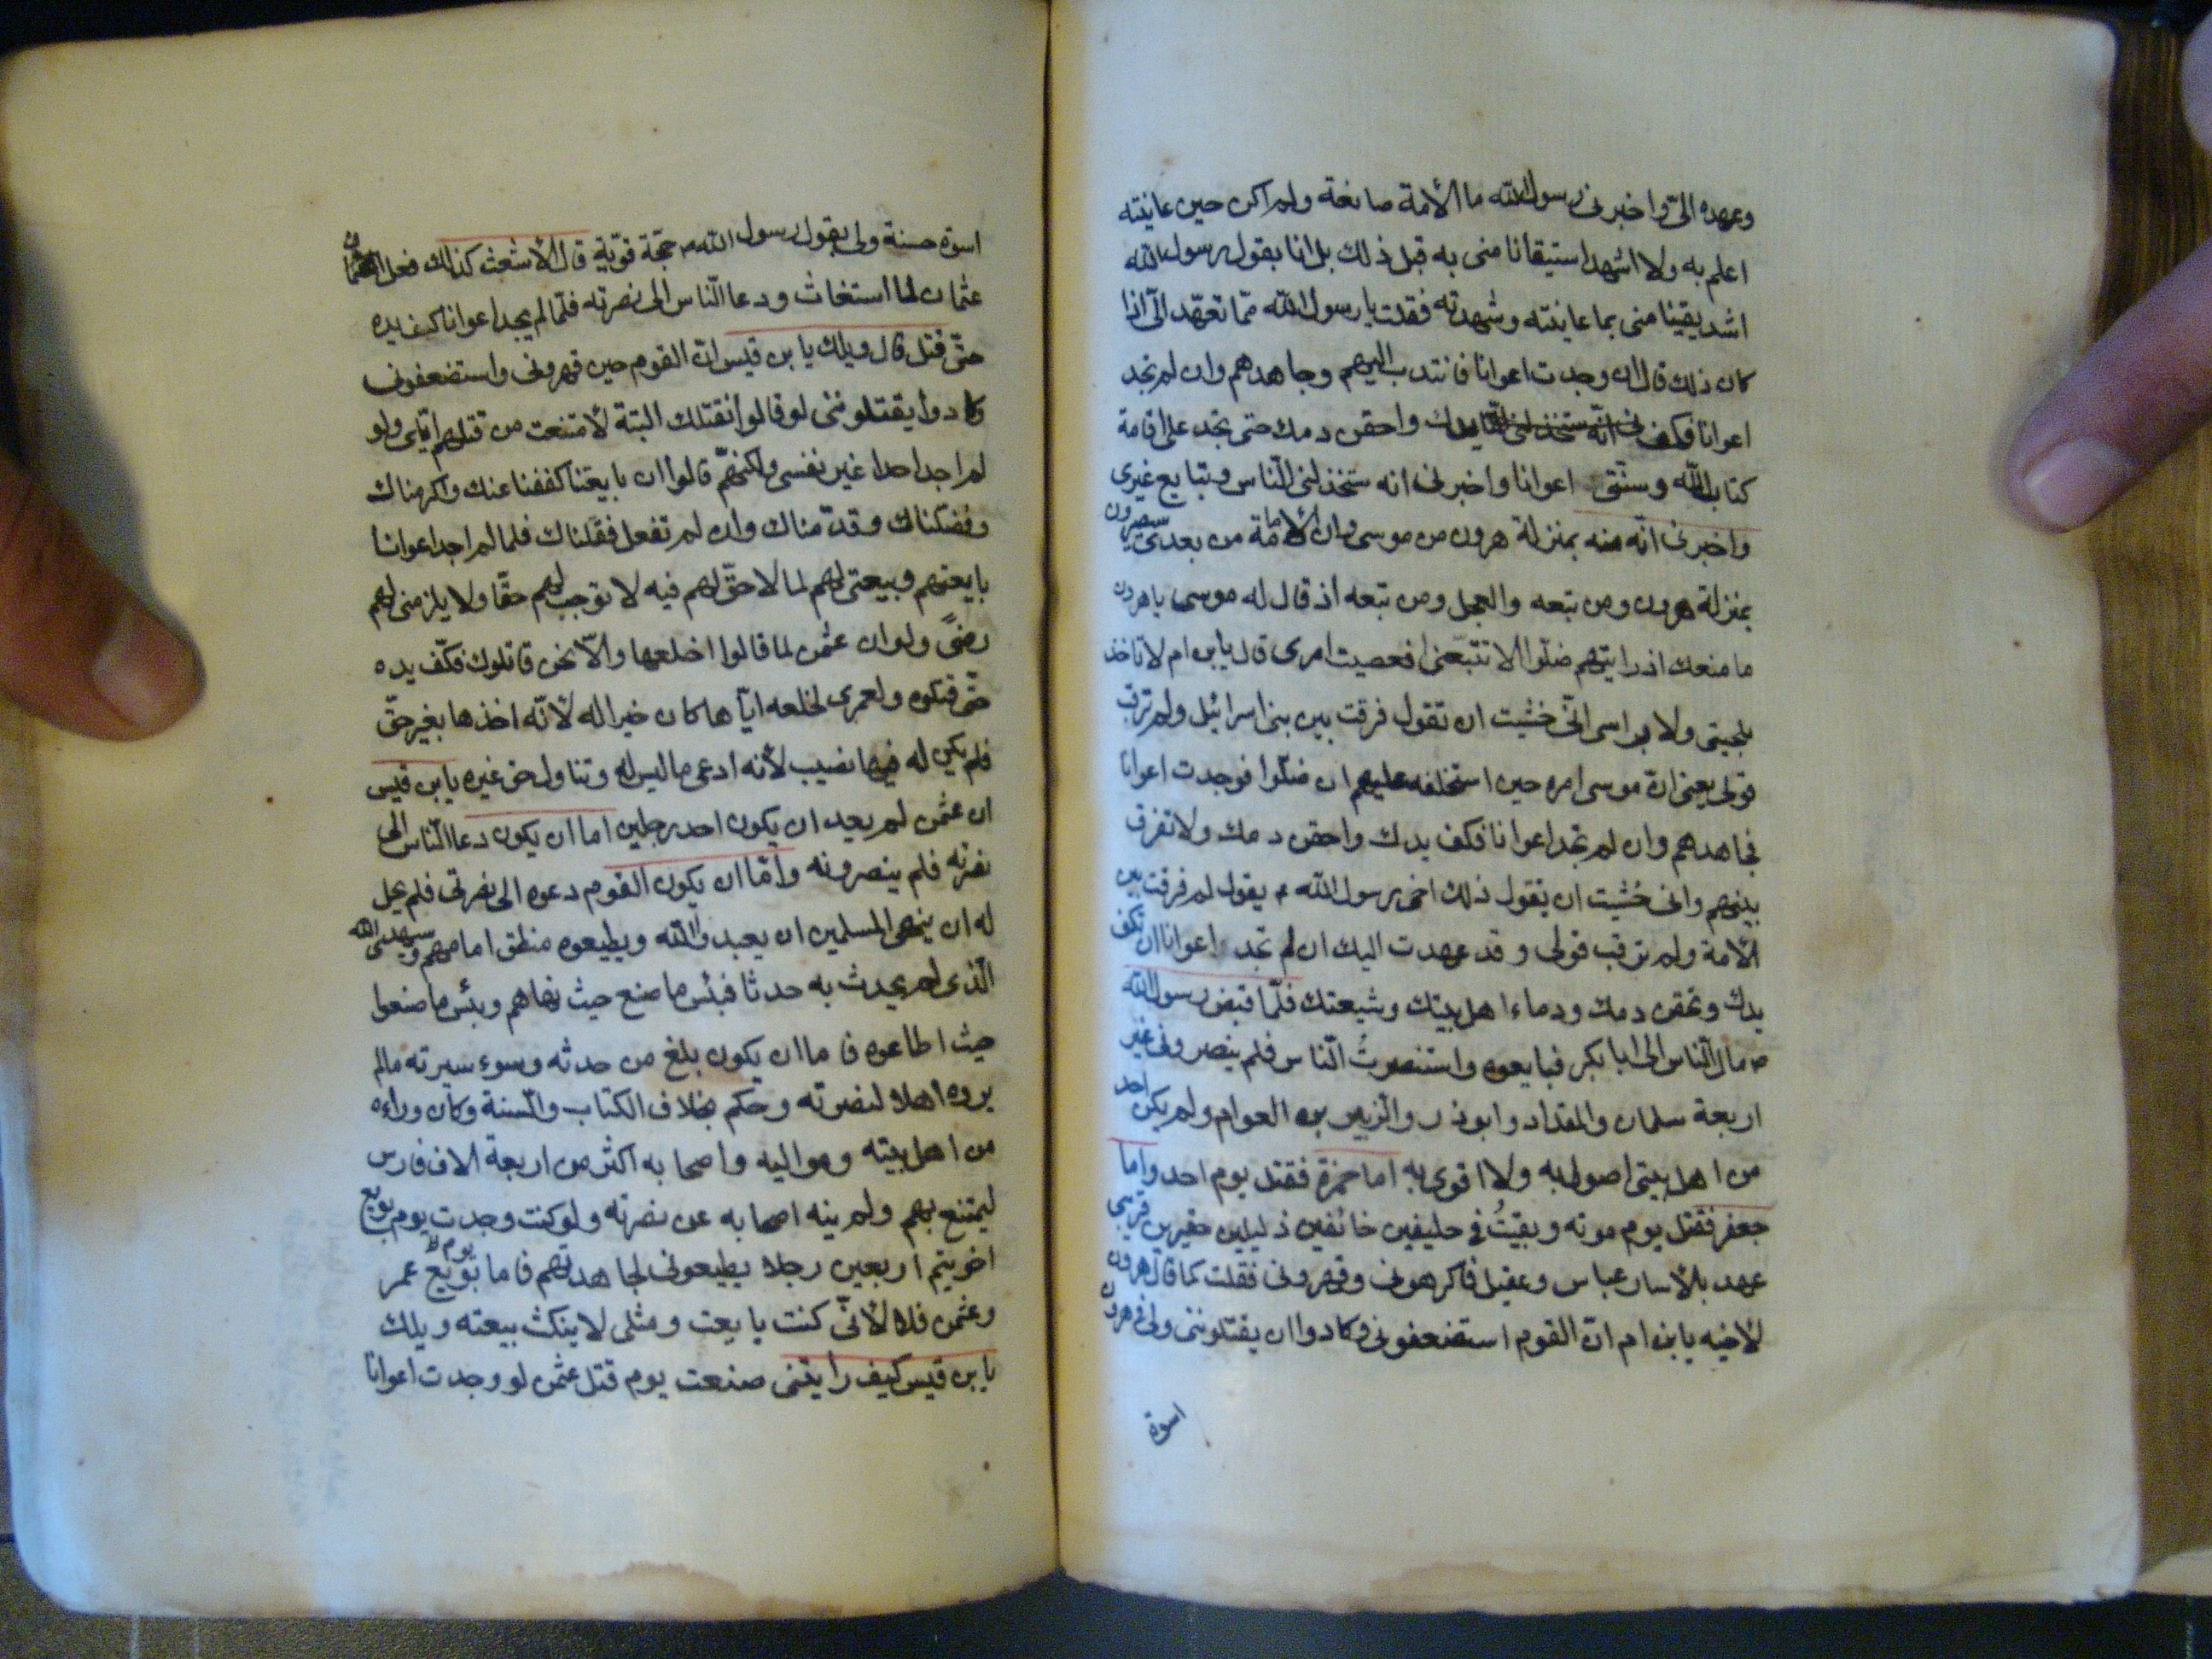 وعهده الىّ واخبرنى رسول الله ما الأمة صانعة ولم اكن حين عاينته
اعلم به ولا اشهد استيقانا منى به قبل ذلك بل انا بقول رسول الله
اشد يقينا منى بما عاينته وشهدته فقلت يا رسول الله ممّا تعهّد الىّ اذا
كان ذلك قال ان وجدت اعوانا فانتدب اليهم وجاهدهم وان لم تجد
اعوانا فكف يدك واحقن دمك حتى تجد على اقامة
كتاب الله وسنّتى اعوانا واخبرنى انه ستخذلنى النّاس وتبايع غيرى
واخبرنى انّه منه بمنزلة هرون من موسى وان الأمة من بعدى سيصيرون
بمنزلة هرون ومن تبعه والعجل ومن تبعه اذ قال له موسى يا هرون
ما منعك اذ رايتهم ضلّوا الا تتّبعنى افعصيت امرى قال يا بن ام لا تاخذ
بلحيتى ولا براسى انّى خشيت ان تقول فرقت بين بنى اسرائيل ولم ترقب
قولى يعنى انّ موسى امره حين استخلفه عليهم ان ضلّوا فوجدت اعوانا
فجاهدهم وان لم تجد اعوانا فكف يدك واحقن دمك ولا تفرق
بينهم وانى خشيت ان يقول ذلك اخى رسول الله يقول لم فرقت بين
الأمة ولم ترقب قولى وقد عهدت اليك ان لم تجد اعوانا ان تكف
يدك وتحقن دمك ودماء اهل بيتك وشيعتك فلمّا قبض رسول الله
ص مال النّاس الى ابا بكر فبايعوه واستنصرتُ النّاس فلم ينصرونى غير
اربعة سلمان والمقداد وابوذر والزبير بن العوام ولم يكن احد
من اهل بيتى اصول به ولا اقوى به اما حمزة فقتل يوم احد واما
جعفر فقتل يوم موته وبقيتُ فى حليفين خائفين ذليلين حقيرين قريبى
عهد بالأسار عباس وعقيل فاكرهونى وقهرونى فقلت كما قال هرون
لأخيه يا بن ام انّ القوم استضعفونى وكادوا ان يقتلوننى ولى فى هرون
اسوة
اسوة حسنة ولى بقول رسول الله حجّة قويّة قال الأشعث كذلك فعل
عثمان لما استغاث ودعا النّاس الى نصرته فلمّا لم يجد اعوانا كف يده
حتّى قتل قال ويلك يا بن قيس انّ القوم حين قهرونى واستضعفونى
وكادوا يقتلوننى لو قالوا نقتلك البتة لأمتنعت من قتلهم ايّاى ولو
لم اجد احدا غير نفسى ولكنهّم قالوا ان بايعتنا كففنا عنك واكرمناك
وفضّلناك وقدّمناك وان لم تفعل فقلناك فلما لم اجد اعوانا
بايعتهم وبيعتى لهم لما لا حقّ لهم فيه لا توجب لهم حقّا ولا يلزمنى لهم
رضىً ولو ان عثمن لما قالوا اخلعها والّا نحن قاتلوك فكفّ يده
حتّى قتلوه ولعمرى لخلعه ايّاها كان خيرا له لأنّه اخذها بغير حقّ
فلم يكن له فيها نصيب لأنه ادعى ما ليس له وتناول حق غيره يا بن قيس
ان عثمن لم يعد ان يكون احد رجلين اما ان يكون دعا النّاس الى
نصرته فلم ينصرونه وامّا ان يكون القوم دعوه الى نصرتى فلم يحل
له ان ينهى المسلمين ان يعبدوا الله ويطيعوه امامهم
الّذى لم يحدث به حدثا فبئس ما صنع حيث نهاهم وبئس ما صنعوا
حيث اطاعوه فاما ان يكون بلغ من حدثه وسوء سيرته مالم
يروه اهلا لنصرته وحكم بخلاف الكتاب والسّنة وكان وراءه
من اهل بيته ومواليه واصحابه اكثر من اربعة الاف فارس
ليمتنع بهم ولم ينه اصحابه عن نصرته ولو كنت وجدت يوم بويع
اخو تيم اربعين رجلا يطيعونى لجاهدتهم فاما يوم بويع عمر
وعثمن فلا لأنّى كنت بايعت ومثلى لا ينكث بيعته ويلك
يا بن قيس كيف رأيتنى صنعت يوم قتل عثمن لو وجدت اعوانا